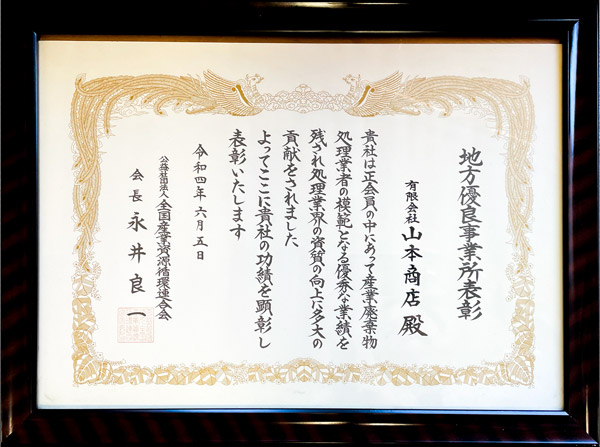 地方優良事業所表彰
有限会社 山本商店 殿
貴社は正会員の中にあって産業廃棄物
処理業者の模範となる優秀な業績を
残され処理業界の資質の向上に多大の
貢献をされました
よってここに貴社の功績を顕彰し
表彰いたします
令和四年六月五日
公益社団法人全国産業資源循環連合会
会長 永井良一